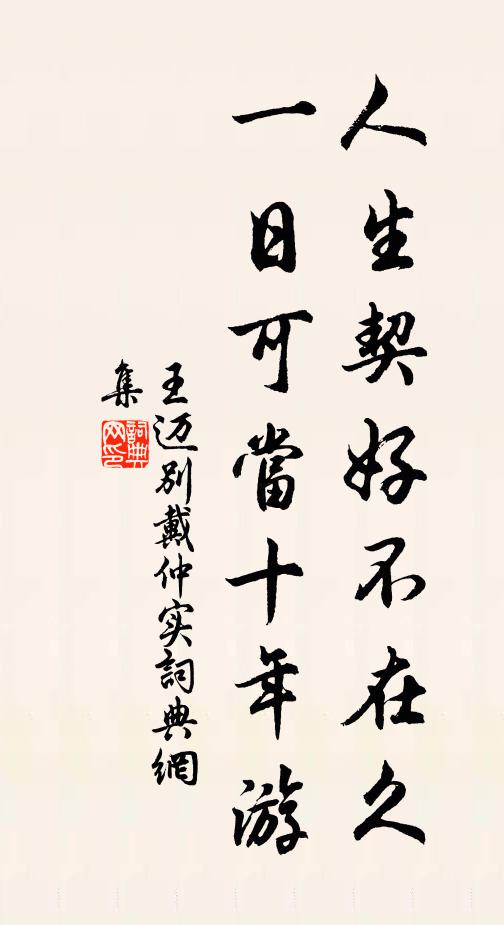 人生契好不在久
一日可當十年游
王迈别戴仲实詞典網
集
詞典
网印